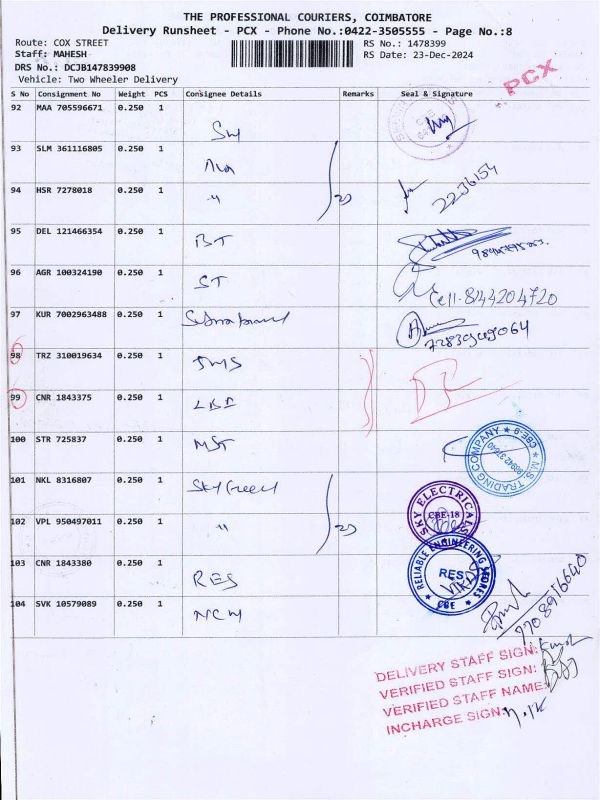 THE PROFESSIONAL COURIERS, COIMBATORE
Delivery Runsheet - PCX - Phone No.:0422-3505555 - Page No.:8
Route: COX STREET
RS No.: 1478399
Staff: MAHESH
RS Date: 23-Dec-2024
DRS No.: DCJB147839908
Vehicle: Two Wheeler Delivery
PCX
S No Consignment No Weight PCS Consignee Details Remarks Seal & Signature
92 MAA 705596671 0.250 1
93 SLM 361116805 0.250 1
94 HSR 7278018 0.250 1 "
2236154
95 DEL 121466354 0.250 1 BT
96 AGR 100324190 0.250 1 ST
Cell-8144204720
97 KUR 7002963488 0.250 1
98 TRZ 310019634 0.250 1 JMS
99 CNR 1843375 0.250 1
100 STR 725837 0.250 1 MST
M.S. TRADING COMPANY ★ CBE-9 ★
101 NKL 8316807 0.250 1 Sky Greey
SKY ELECTRICALS
CBE-18
102 VPL 950497011 0.250 1 "
103 CNR 1843380 0.250 1 RES
RELIABLE ENGINEERING STORES
RES
104 SVK 10579089 0.250 1 NCW
7708916640
DELIVERY STAFF SIGN:
VERIFIED STAFF SIGN:
VERIFIED STAFF NAME:
INCHARGE SIGN: